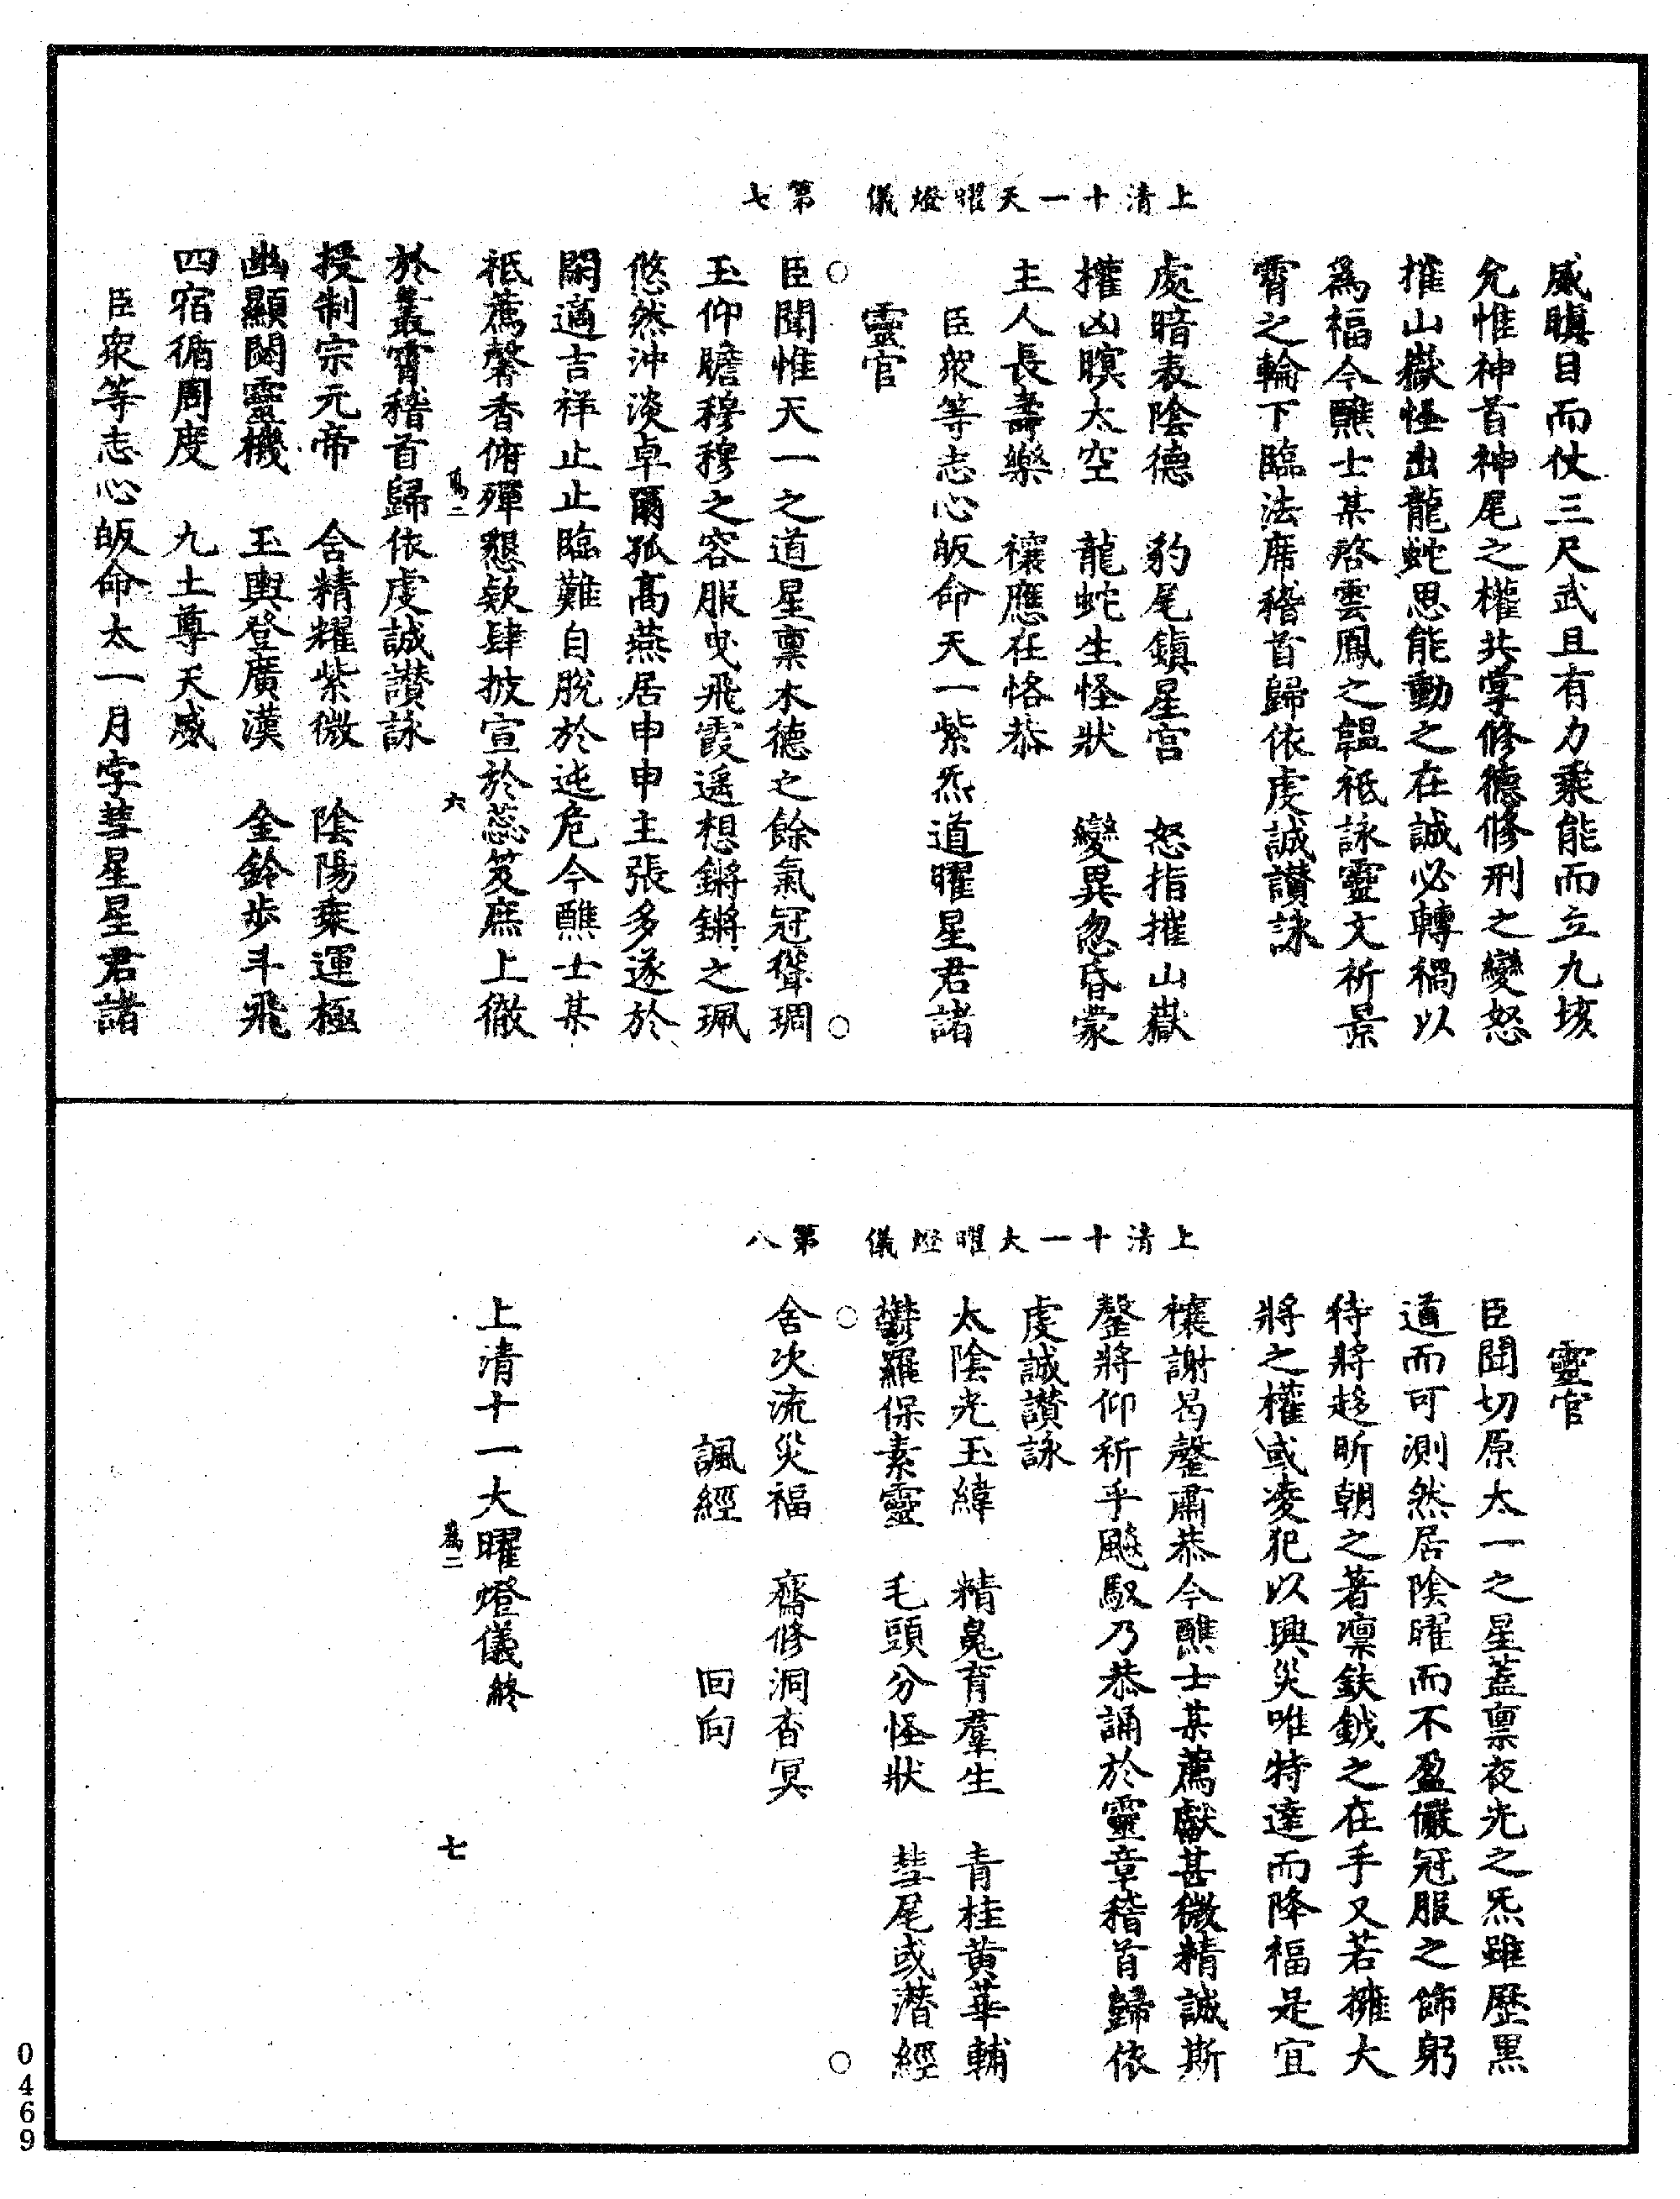 上清十一天曜燈儀　第七
威瞋目而仗三尺武且有力乘能而立九垓
允惟神首神尾之權共掌修德修刑之變怒
摧山嶽怪出龍蛇思能動之在誠必轉禍以
爲福今醮士某啓雲鳳之韞祗詠靈文祈景
霄之輪下臨法席稽首歸依虔誠讃詠
處暗表陰德　豹尾鎮星宫　怒指摧山嶽
摧凶瞑太空　龍蛇生怪狀　變異忽昏蒙
主人長壽樂　禳應在恪恭
臣衆等志心皈命天一紫炁道曜星君諸
靈官
臣聞惟天一之道星禀木德之餘氣冠聳琱
玉仰瞻穆穆之容服曳飛霞遥想鏘鏘之珮
悠然沖淡卓爾孤高燕居申申主張多遂於
閑適吉祥止止臨難自脱於迍危今醮士某
祗薦馨香俯殫懇欵肆披宣於蕊笈庶上徹
於叢霄稽首歸依虔誠讃詠
授制宗元帝　含精耀紫微　陰陽乘運極
幽顯闊靈機　玉輿登廣漢　金鈴步斗飛
四宿循周度　九土尊天威
臣衆等志心皈命太一月孛彗星星君諸
六
上清十一大曜燈儀　第八
靈官
臣聞切原太一之星蓋禀夜光之炁雖歷黑
道而可測然居陰曜而不盈儼冠服之飾躬
待將趍昕朝之著凜鈇鉞之在手又若擁大
將之權或凌犯以興災唯特達而降福是宜
禳謝曷罄肅恭今醮士某薦獻甚微精誠斯
罄將仰祈乎飈馭乃恭誦於靈章稽首歸依
虔誠讃詠
太陰光玉緯　精㲋育羣生　青桂黄華輔
欝羅保素靈　毛頭分怪狀　彗尾或潜經
舍次流災福　齋修洞杳冥
諷經　回向
上清十一大曜燈儀終
七
0469